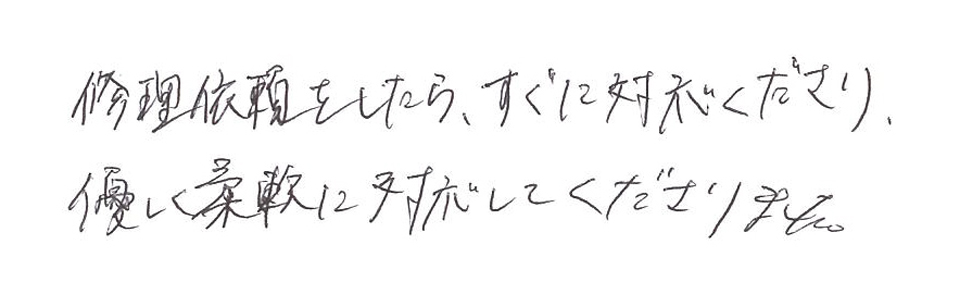 修理依頼をしたら、すぐに対応くださり、
優しく柔軟に対応してくださりました。